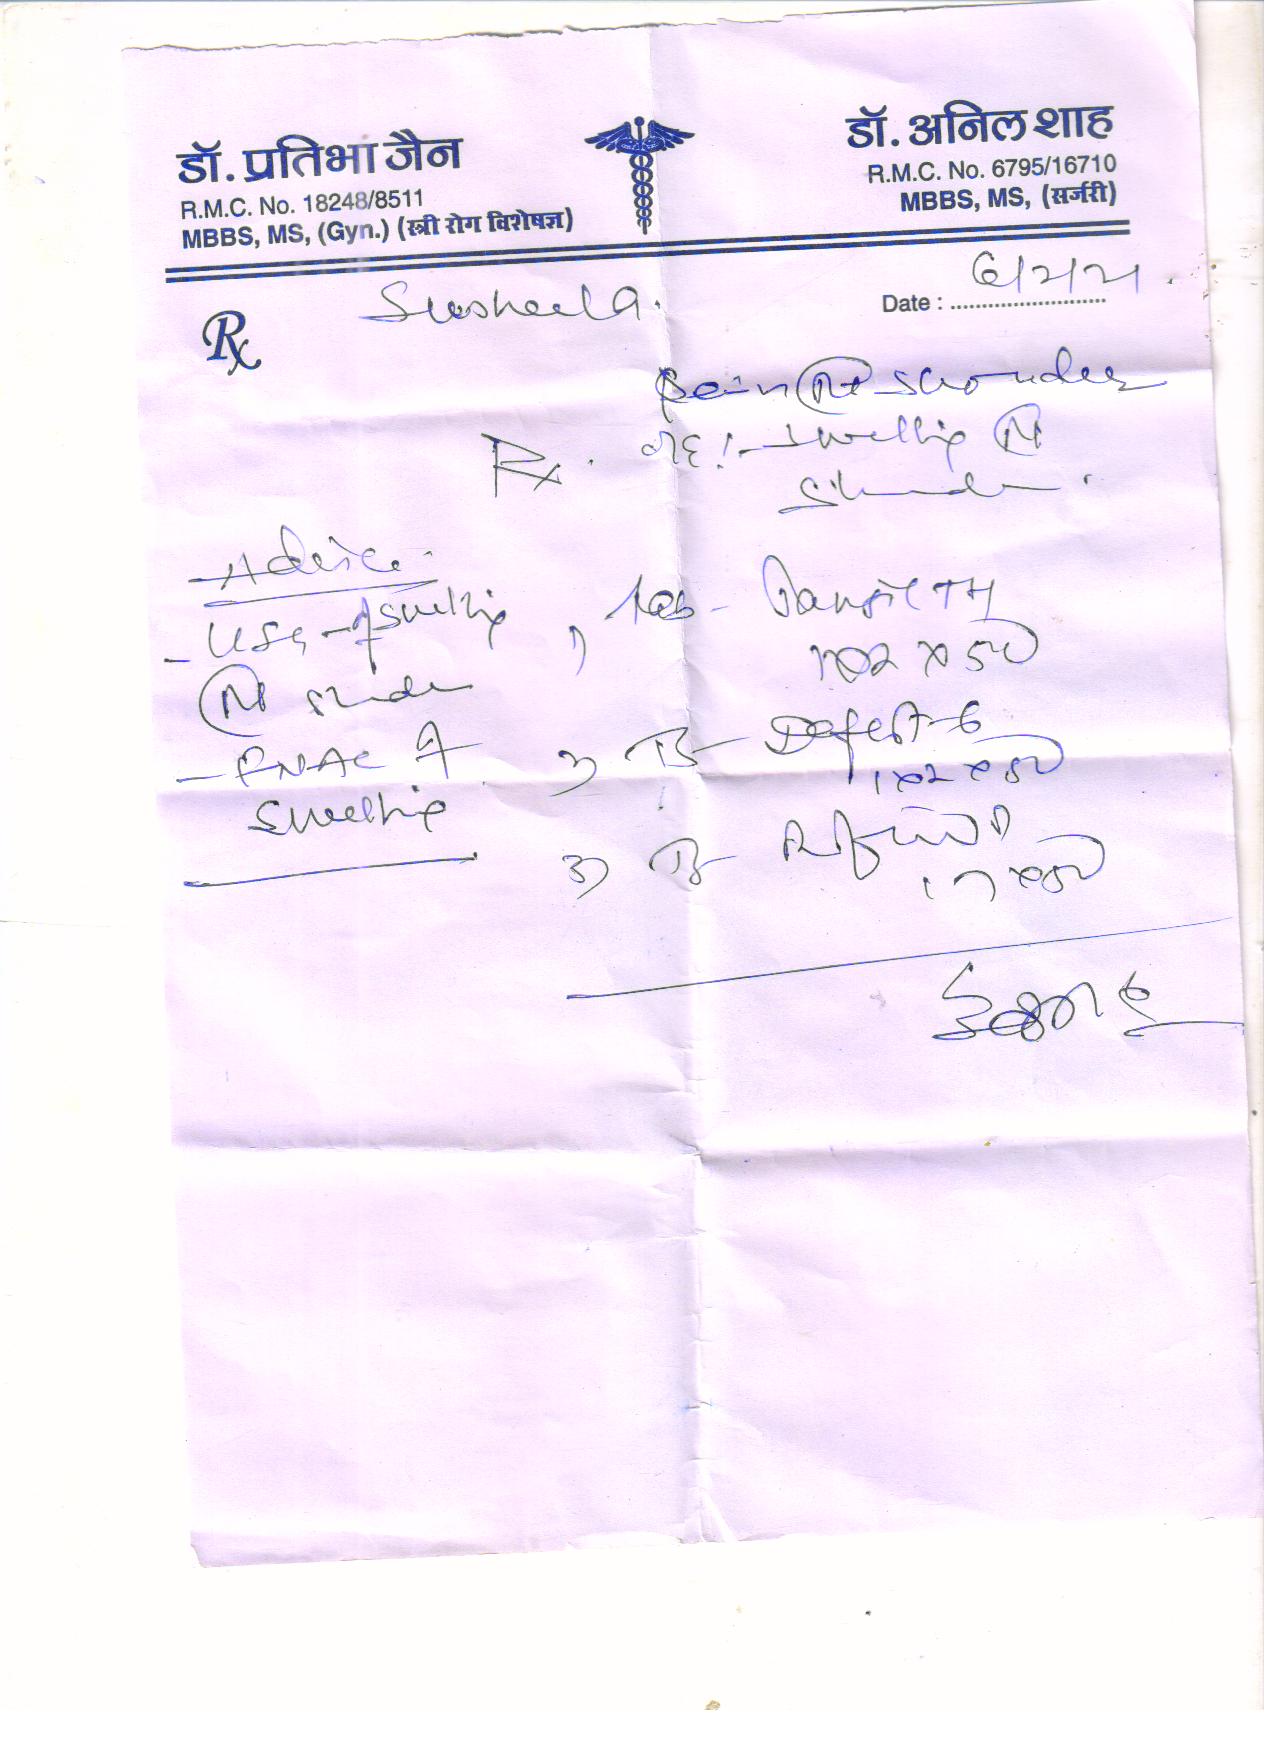 डॉ. प्रतिभा जैन
R.M.C. No. 18248/8511
MBBS, MS, (Gyn.) (स्त्री रोग विशेषज्ञ)
डॉ. अनिल शाह
R.M.C. No. 6795/16710
MBBS, MS, (सर्जरी)
Susheela.
Date : 6/2/21
Rx
Pain Rt shoulder
Rx. O/E :- Swelling Rt
Shoulder.
Advice.
- USG - of swelling
Rt shoulder
- FNAC of
Swelling
1) Tab -
1x2 x 5D
2) Tb - 6
1x2 x 5D
3) Tb
x 5D